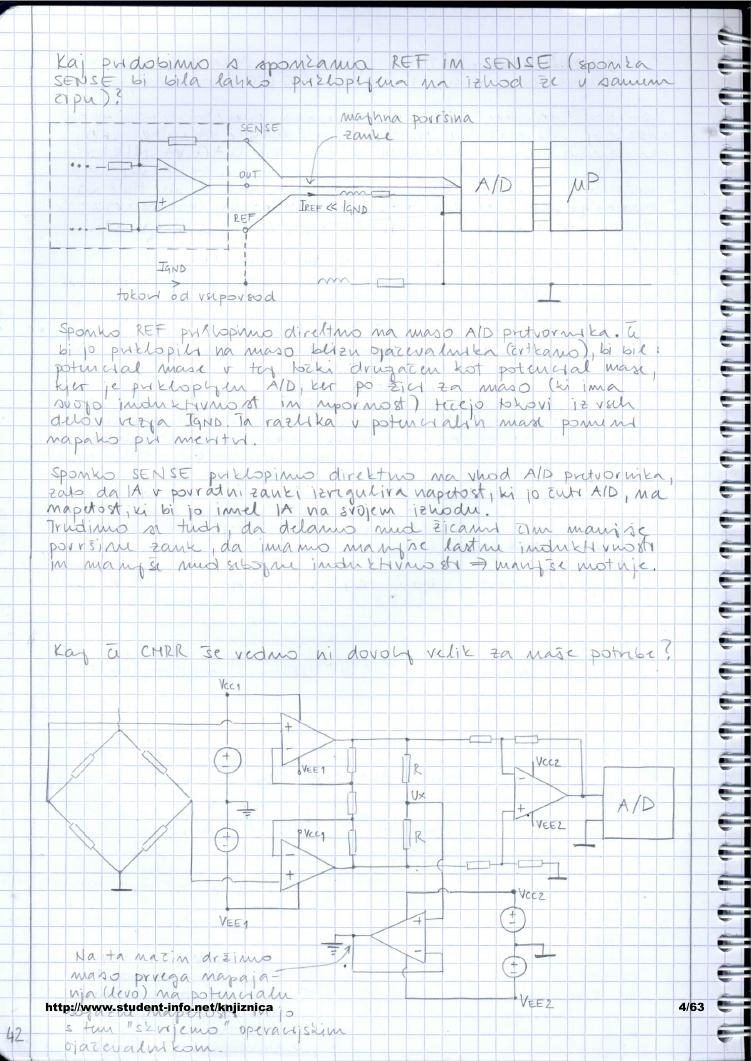 Kaj pridobimo s sponkama REF in SENSE (sponka
SENSE bi bila lahko priklopljena na izhod že v samem
čipu)?
SENSE
majhna površina
zanke
OUT
A/D
μP
REF
IREF << IGND
IGND
tokovi od vsepovsod
Sponko REF priklopimo direktno na maso A/D pretvornika. Če
bi jo priklopili na maso blizu ojačevalnika (črtkano), bi bil
potencial mase v tej točki drugačen kot potencial mase,
kjer je priklopljen A/D, ker po žici za maso (ki ima
svojo induktivnost in upornost) tečejo tokovi iz vseh
delov vezja IGND. Ta razlika v potencialih mase pomeni
napako pri meritvi.
Sponko SENSE priklopimo direktno na vhod A/D pretvornika,
zato da IA v povratni zanki izregulira napetost, ki jo čuti A/D, na
napetost, ki bi jo imel IA na svojem izhodu.
Trudimo se tudi, da delamo med žicami čim manjše
površine zank, da imamo manjše lastne induktivnosti
in manjše medsebojne induktivnosti ⇒ manjše motnje.
Kaj če CMRR še vedno ni dovolj velik za naše potrebe?
VCC1
+
-
VEE1
R
UX
R
VCC1
-
+
VEE1
VCC2
-
+
VEE2
A/D
VCC2
+
-
VEE2
Na ta način držimo
maso prvega napaja-
nja (levo) na potencialu
napetosti in jo
s tem "skrijemo" operacijskim
ojačevalnikom.
http://www.student-info.net/knjiznica
4/63
42